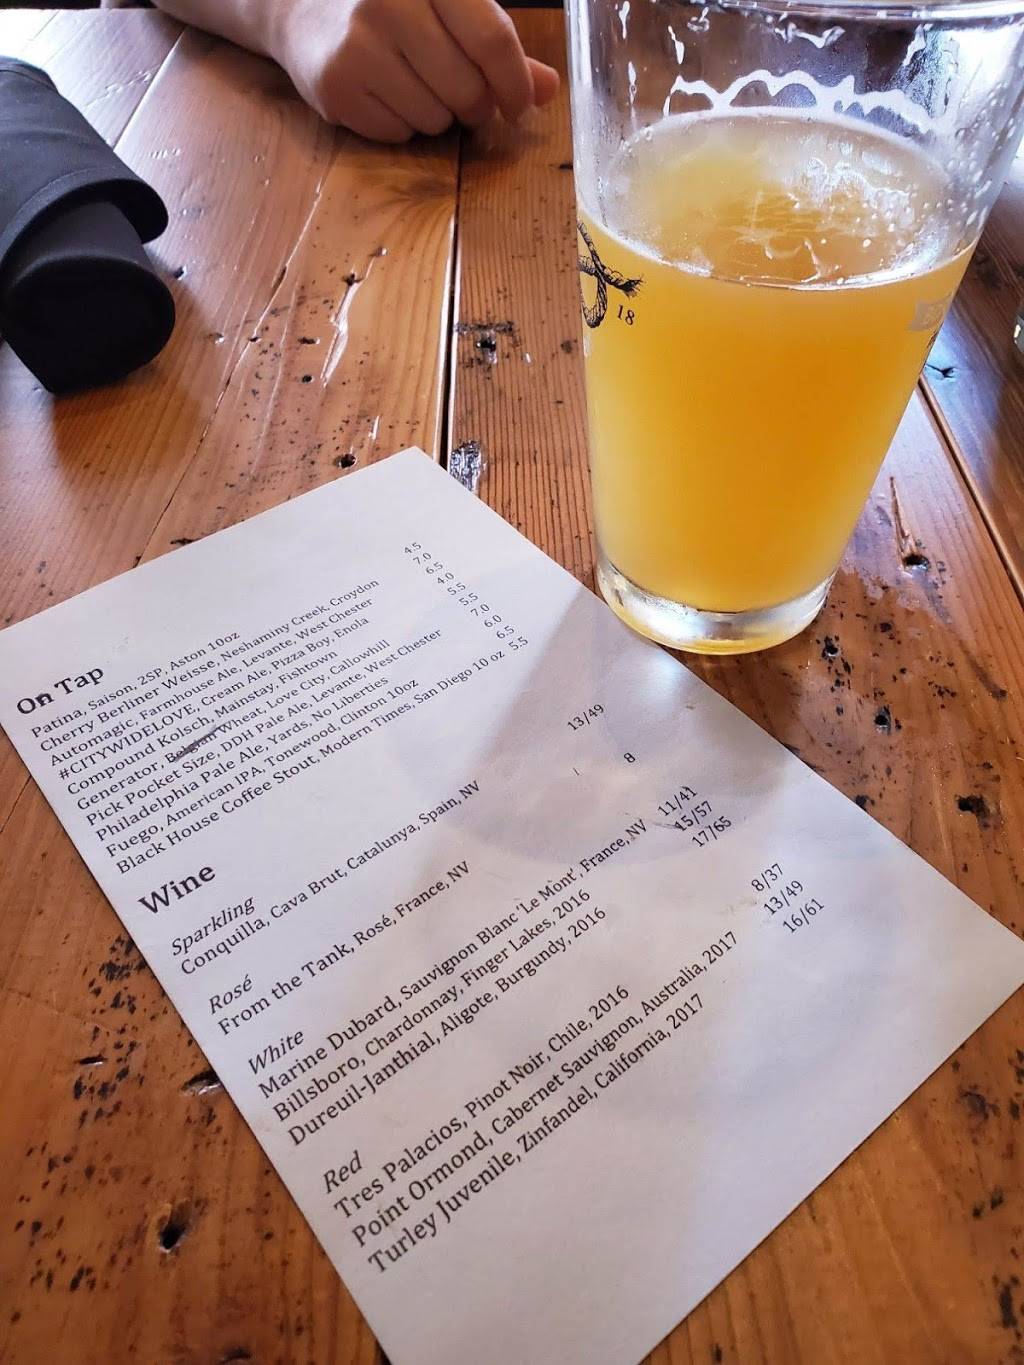 On Tap
Patina, Saison, 2SP, Aston 10oz 4.5
Cherry Berliner Weisse, Neshaminy Creek, Croydon 7.0
Automagic, Farmhouse Ale, Levante, West Chester 6.5
#CITYWIDELOVE, Cream Ale, Pizza Boy, Enola 4.0
Compound Kolsch, Mainstay, Fishtown 5.5
Generator, Belgian Wheat, Love City, Callowhill 5.5
Pick Pocket Size, DDH Pale Ale, Levante, West Chester 7.0
Philadelphia Pale Ale, Yards, No Liberties 6.0
Fuego, American IPA, Tonewood, Clinton 10oz 6.5
Black House Coffee Stout, Modern Times, San Diego 10 oz 5.5
Wine
Sparkling
Conquilla, Cava Brut, Catalunya, Spain, NV 13/49
Rosé
From the Tank, Rosé, France, NV 8
White
Marine Dubard, Sauvignon Blanc 'Le Mont', France, NV 11/41
Billsboro, Chardonnay, Finger Lakes, 2016 15/57
Dureuil-Janthial, Aligote, Burgundy, 2016 17/65
Red
Tres Palacios, Pinot Noir, Chile, 2016 8/37
Point Ormond, Cabernet Sauvignon, Australia, 2017 13/49
Turley Juvenile, Zinfandel, California, 2017 16/61
18